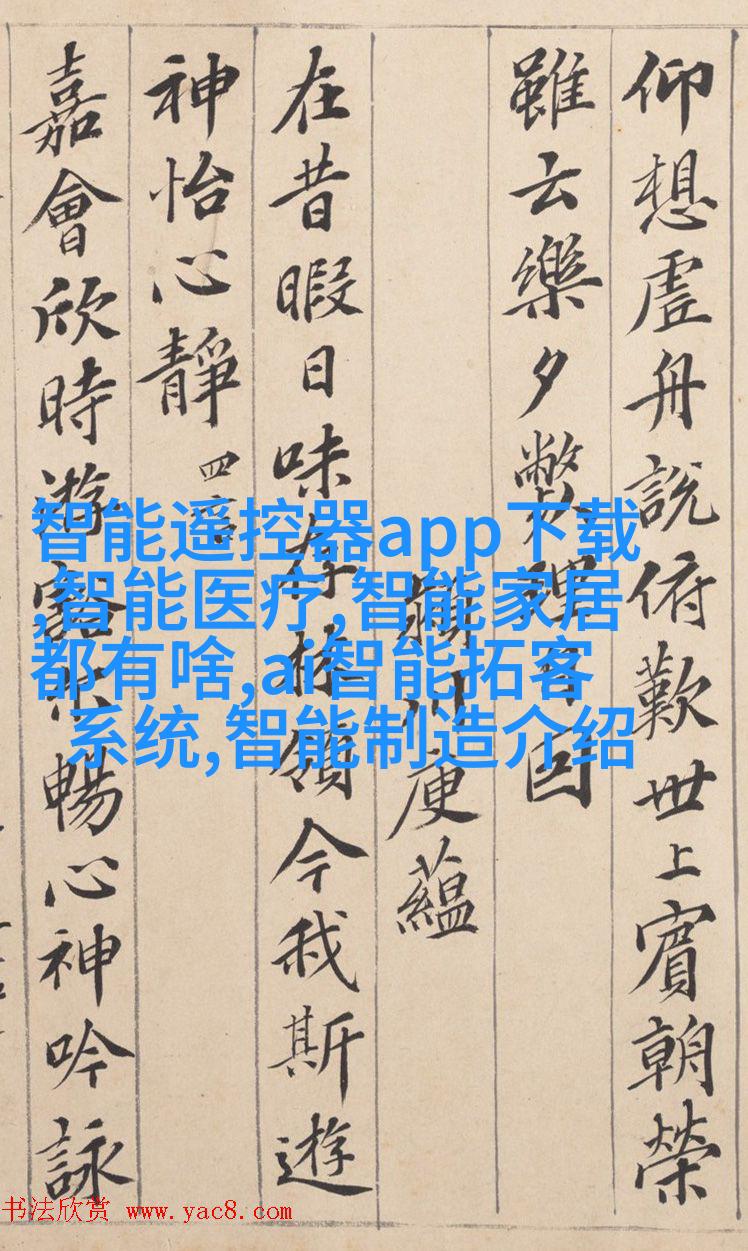 仰想虛舟說俯歎世上賓朝榮
雖云樂夕斃理自因
川庾蘊
在昔暇日味存林嶺今我斯遊
神怡心靜 四言
嘉會欣時遊豁尒暢心神吟詠
智能遥控器app下载
,智能医疗,智能家居
都有啥,ai智能拓客
系统,智能制造介绍
书法欣赏 www.yac8.com